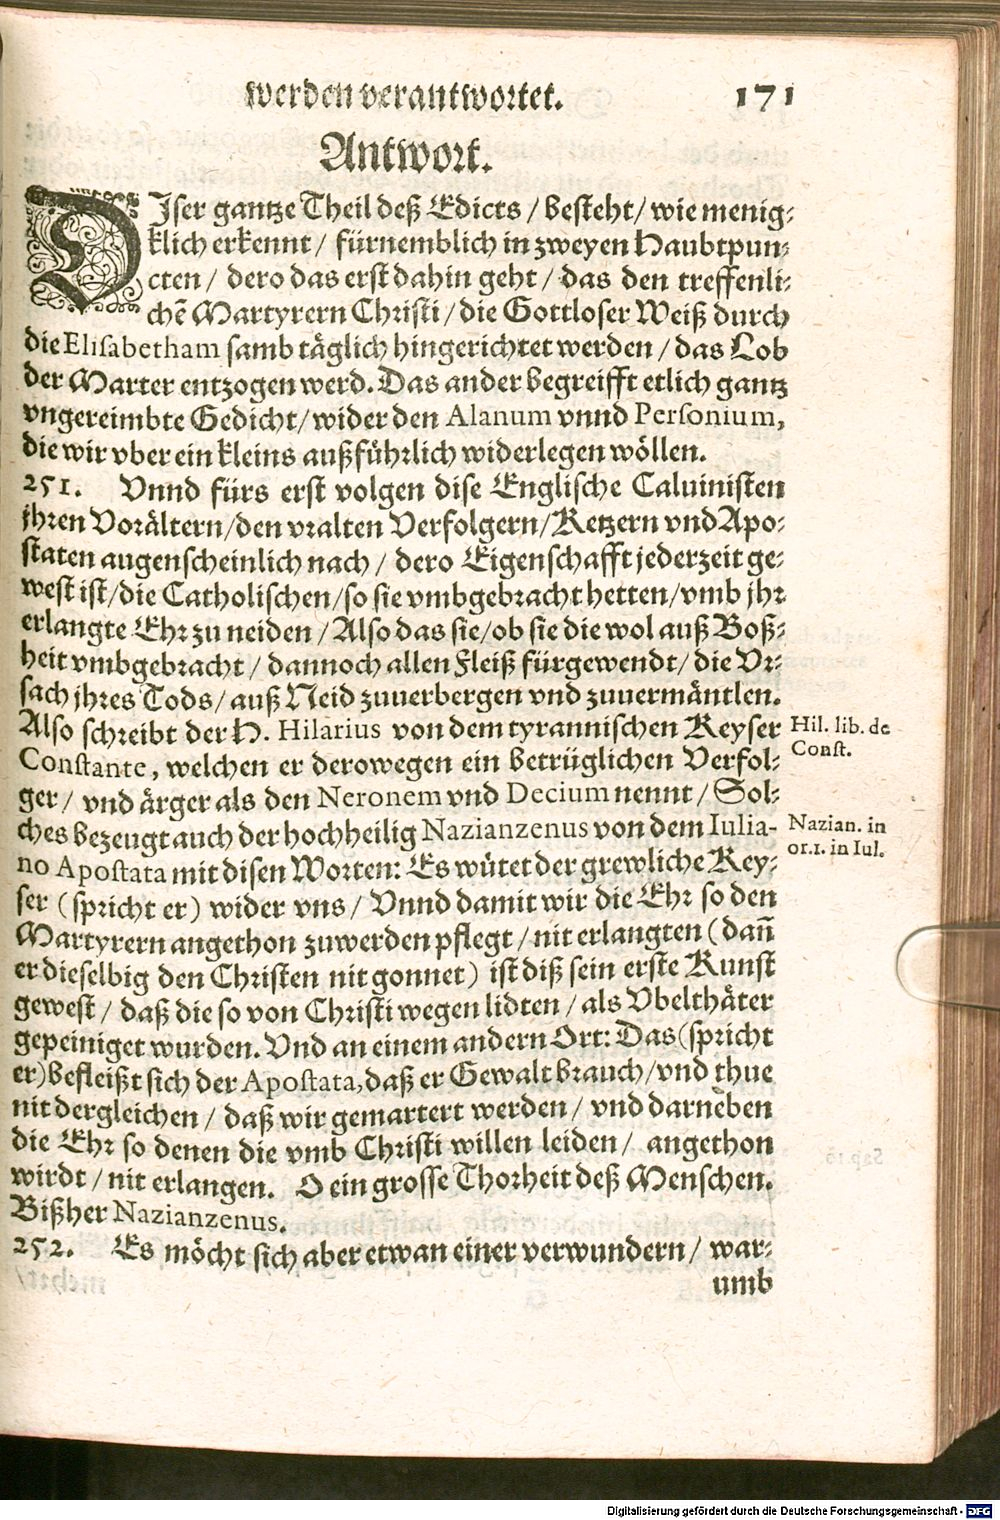 werden verantwortet. 171
Antwort.
DIser gantze Theil deß Edicts / besteht / wie menig-
klich erkennt / fürnemblich in zweyen Haubtpun-
cten / dero das erst dahin geht / das den treffenli-
chẽ Martyrern Christi / die Gottloser Weiß durch
die Elisabetham samb täglich hingerichtet werden / das Lob
der Marter entzogen werd. Das ander begreifft etlich gantz
vngereimbte Gedicht / wider den Alanum vnnd Personium,
die wir vber ein kleins außführlich widerlegen wöllen.
251. Vnnd fürs erst volgen dise Englische Caluinisten
jhren Vorältern / den vralten Verfolgern / Ketzern vnd Apo-
staten augenscheinlich nach / dero Eigenschafft jederzeit ge-
west ist / die Catholischen / so sie vmbgebracht hetten / vmb jhr
erlangte Ehr zu neiden / Also das sie / ob sie die wol auß Boß-
heit vmbgebracht / dannoch allen Fleiß fürgewendt / die Vr-
sach jhres Tods / auß Neid zuuerbergen vnd zuuermäntlen.
Also schreibt der H. Hilarius von dem tyrannischen Keyser
Hil. lib. de
Const.
Constante, welchen er derowegen ein betrüglichen Verfol-
ger / vnd ärger als den Neronem vnd Decium nennt / Sol-
ches bezeugt auch der hochheilig Nazianzenus von dem Iulia-
Nazian. in
or.1. in Iul.
no Apostata mit disen Worten: Es wütet der grewliche Key-
ser (spricht er) wider vns / Vnnd damit wir die Ehr so den
Martyrern angethon zuwerden pflegt / nit erlangten (dañ
er dieselbig den Christen nit gonnet) ist diß sein erste Kunst
gewest / daß die so von Christi wegen lidten / als Vbelthäter
gepeiniget wurden. Vnd an einem andern Ort: Das (spricht
er) befleißt sich der Apostata, daß er Gewalt brauch / vnd thue
nit dergleichen / daß wir gemartert werden / vnd darneben
die Ehr so denen die vmb Christi willen leiden / angethon
wirdt / nit erlangen. O ein grosse Thorheit deß Menschen.
Bißher Nazianzenus.
252. Es möcht sich aber etwan einer verwundern / war-
umb
Digitalisierung gefördert durch die Deutsche Forschungsgemeinschaft - DFG